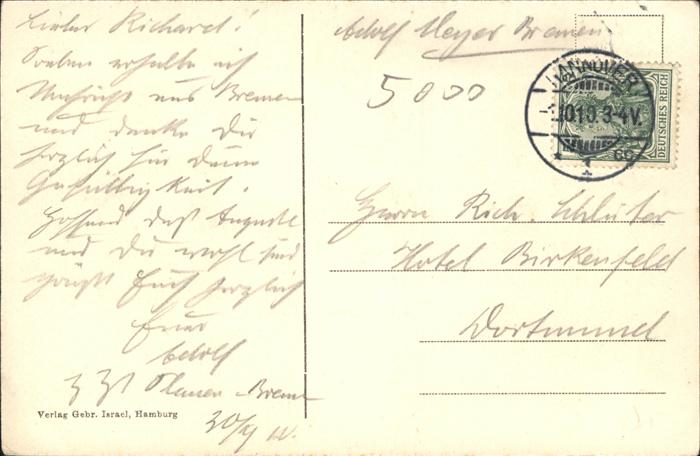 Lieber Richard!
Soeben erhalte ich
Nachricht aus Bremen
und danke Dir
herzlich für Deine
Gefälligkeit.
Hoffend daß Auguste
und Du wohl sind
grüßt Euch herzlich
Euer
Adolf
z Zt Bremen
30/
Verlag Gebr. Israel, Hamburg
Adolf Meyer Bremen
5000
HANNOVER
10 3-4V.
1
DEUTSCHES REICH
Herrn Rich. Schlüter
Hotel Birkenfeld
Dortmund